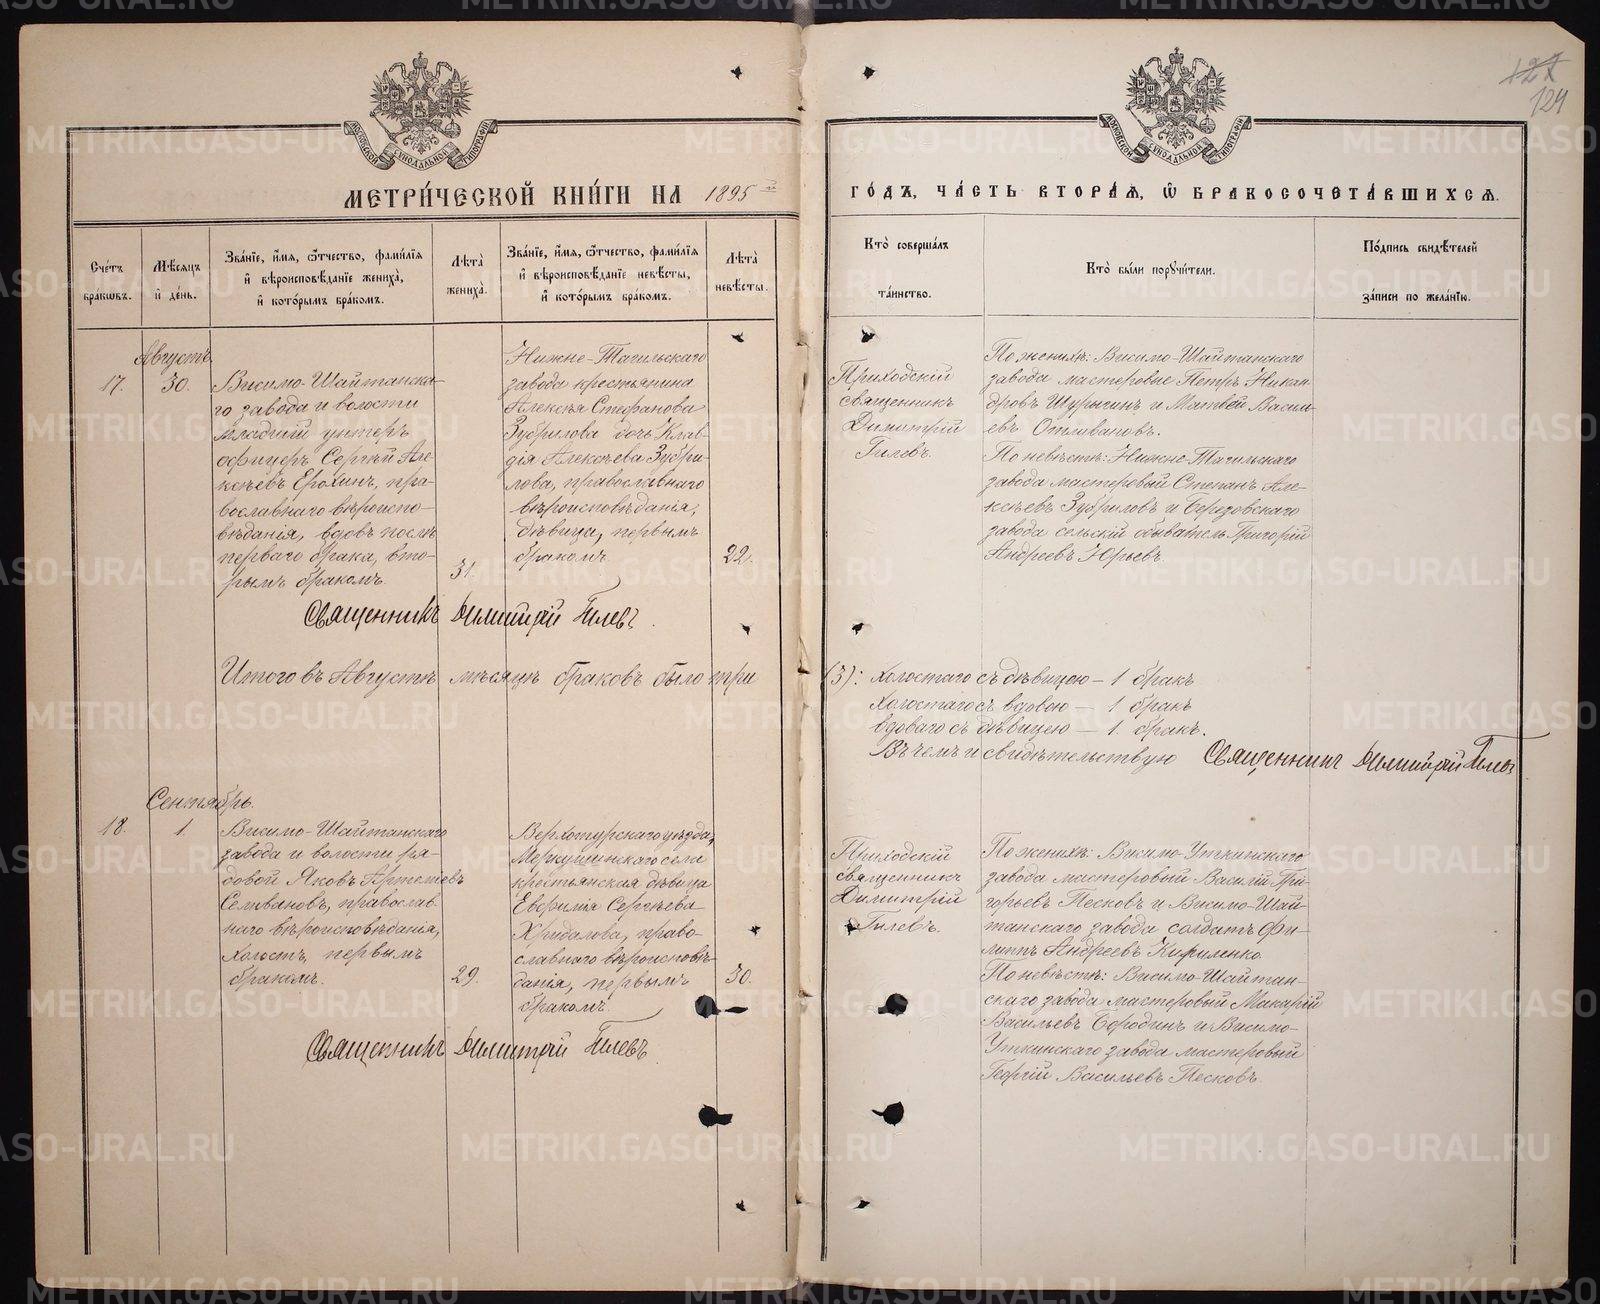 МЕТРИ́ЧЕСКОЙ КНИ́ГИ НА 1895
ГО́ДЪ, ЧА́СТЬ ВТОРА́Я, Ѽ БРАКОСОЧЕТА́ВШИХСЯ.
124
МОСКОВСКОЙ СѴНОДАЛЬНОЙ ТИПОГРАФІИ
МОСКОВСКОЙ СѴНОДАЛЬНОЙ ТИПОГРАФІИ
Сче́тъ бра́ковъ.
Мѣ́сяцъ и҆ де́нь.
Зва́нїе, и҆́мя, ѻ҆́тчество, фами́лїя
и҆ вѣроисповѣ́данїе жениха̀,
и҆ кото́рымъ бра́комъ.
Лѣта̀ жениха̀.
Зва́нїе, и҆́мя, ѻ҆́тчество, фами́лїя
и҆ вѣроисповѣ́данїе невѣ́сты,
и҆ кото́рымъ бра́комъ.
Лѣта̀ невѣ́сты.
Кто̀ соверша́лъ
та́инство.
Кто̀ бы́ли порꙋчи́тели.
По́дпись свидѣ́телей
за́писи по жела́нїю.
Августъ
17.
30.
Висимо-Шайтанска-
го завода и волости
младшій унтеръ
офицеръ Сергѣй Але-
ксѣевъ Ерохинъ, пра-
вославнаго вѣроиспо-
вѣданія, вдовъ послѣ
перваго брака, вто-
рымъ бракомъ.
31.
Нижне-Тагильскаго
завода крестьянина
Алексѣя Стефанова
Зубрилова дочь Клав-
дія Алексѣева Зубри-
лова, православнаго
вѣроисповѣданія,
дѣвица, первымъ
бракомъ.
22.
Приходскій
священникъ
Димитрій
Гилевъ.
По женихѣ: Висимо-Шайтанскаго
завода мастеровые Петръ Никан-
дровъ Шурыгинъ и Матвей Василь-
евъ Отливановъ.
По невѣстѣ: Нижне-Тагильскаго
завода мастеровый Степанъ Але-
ксѣевъ Зубриловъ и Березовскаго
завода сельскій обыватель Григорій
Андреевъ Юрьевъ.
Священникъ Димитрій Гилевъ.
Итого въ Августѣ мѣсяцѣ браковъ было три
(3): холостаго съ дѣвицею — 1 бракъ
холостаго съ вдовою — 1 бракъ
вдоваго съ дѣвицею — 1. бракъ.
Въ чемъ и свидѣтельствую Священникъ Димитрій Гилевъ
Сентябрь.
18.
1.
Висимо-Шайтанскаго
завода и волости ря-
довой Яковъ Артемьевъ
Селивановъ, православ-
наго вѣроисповѣданія,
холостъ, первымъ
бракомъ.
29.
Верхотурскаго уѣзда,
Меркушинскаго села
крестьянская дѣвица
Евфимія Сергѣева
право-
славнаго вѣроисповѣ-
данія, первымъ
бракомъ.
30.
Приходскій
священникъ
Димитрій
Гилевъ.
По женихѣ: Висимо-Уткинскаго
завода мастеровый Василій Гри-
горьевъ Песковъ и Висимо-Шай-
танскаго завода солдатъ Фи-
липпъ Андреевъ Кириленко.
По невѣстѣ: Висимо-Шайтан-
скаго завода мастеровый Макарій
Васильевъ Бородинъ и Висимо-
Уткинскаго завода мастеровый
Георгій Васильевъ Песковъ.
Священникъ Димитрій Гилевъ
METRIKI.GASO-URAL.RU